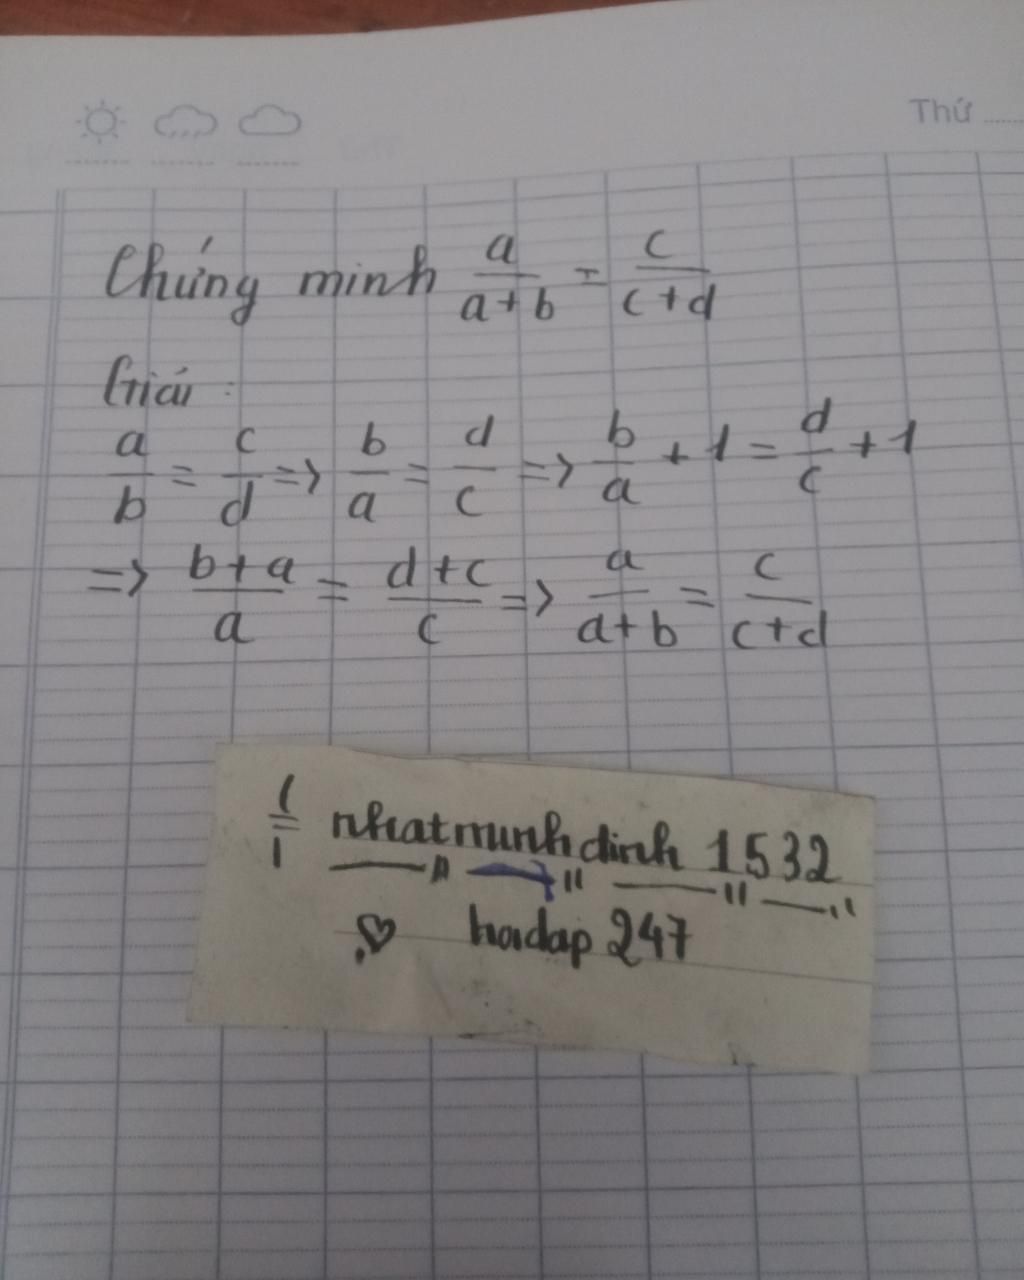 Thứ ......
Chứng minh a/(a+b) = c/(c+d)
Giải :
a/b = c/d => b/a = d/c => b/a + 1 = d/c + 1
=> (b+a)/a = (d+c)/c => a/(a+b) = c/(c+d)
nhatminhdinh 1532
hoidap 247